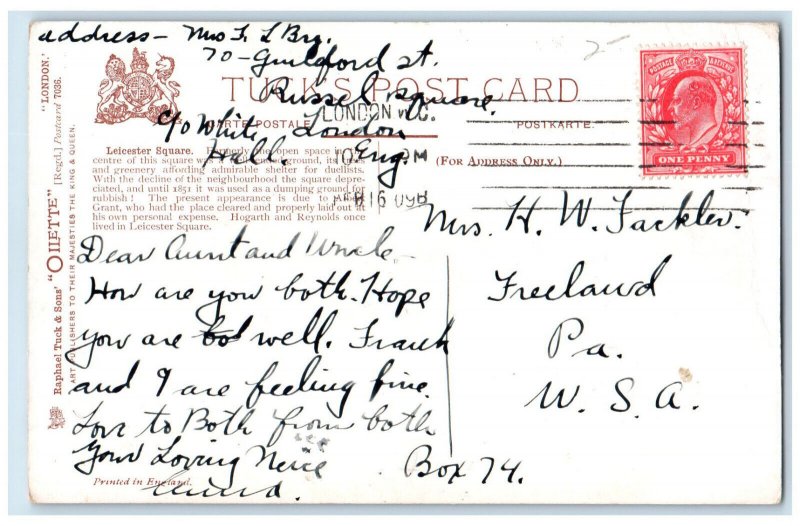 address – Mrs F. L Bry.
70 – Guildford st.
Russel square.
c/o White London
Hall. Eng.
TUCK'S POST CARD
CARTE POSTALE
POSTKARTE.
(FOR ADDRESS ONLY.)
LONDON W.C.
APR 16 09
POSTAGE & REVENUE
ONE PENNY
Leicester Square. Formerly the open space in the
centre of this square was
and greenery affording admirable shelter for duellists.
With the decline of the neighbourhood the square depre-
ciated, and until 1851 it was used as a dumping ground for
rubbish! The present appearance is due to
Grant, who had the place cleared and properly laid out at
his own personal expense. Hogarth and Reynolds once
lived in Leicester Square.
Raphael Tuck & Sons' "OILETTE" [Regd.] Postcard 7036. "LONDON."
ART PUBLISHERS TO THEIR MAJESTIES THE KING & QUEEN.
Dear Aunt and Uncle –
How are you both. Hope
you are well. Frank
and I are feeling fine.
Love to Both from both
Your Loving Neice
Printed in England.
Mrs. H. W. Fackler.
Freeland
Pa.
U. S. A.
Box 74.